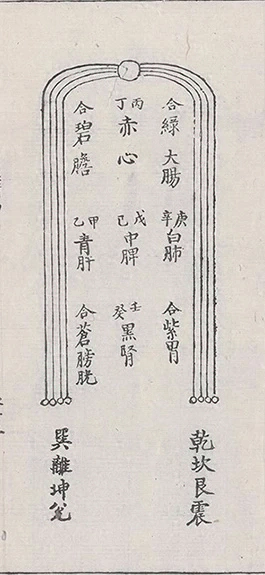 合綠大腸
庚辛白肺
合紫胃
丙丁赤心
戊己中脾
壬癸黑腎
合碧膽
甲乙青肝
合蒼膀胱
乾坎艮震
巽離坤兊